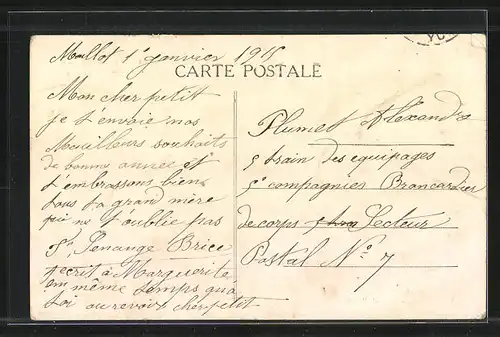 Maillot 1er janvier 1915
CARTE POSTALE
Mon cher petit
je t'envoie nos
Meuilleurs souhaits
de bonne annee et
t'embrassons bien
tous ta grand mère
qui ne t'oublie pas
Brice
j'ecrit à Marguerite
em même temps qua
toi au revoir cher petit
Plumet Alexandre
5 train des équipages
5e compagnies Brancardier
de corps Secteur
Postal No 7